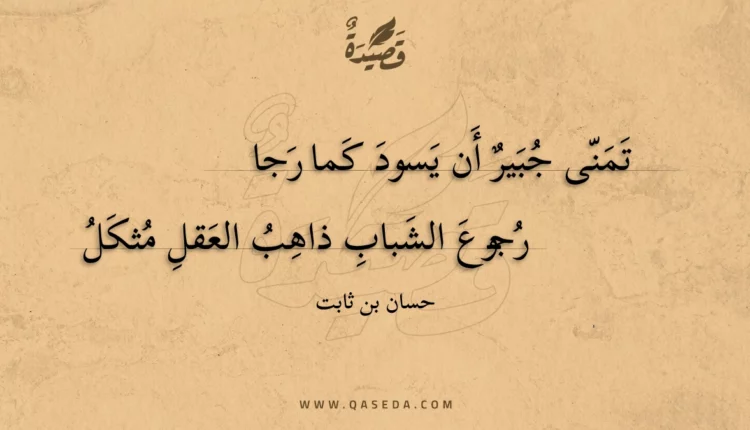 قَصِيْدَةٌ
تَمَنّى جُبَيرٌ أَن يَسودَ كَما رَجا
رُجوعَ الشَبابِ ذاهِبُ العَقلِ مُثكَلُ
حسان بن ثابت
WWW.QASEDA.COM